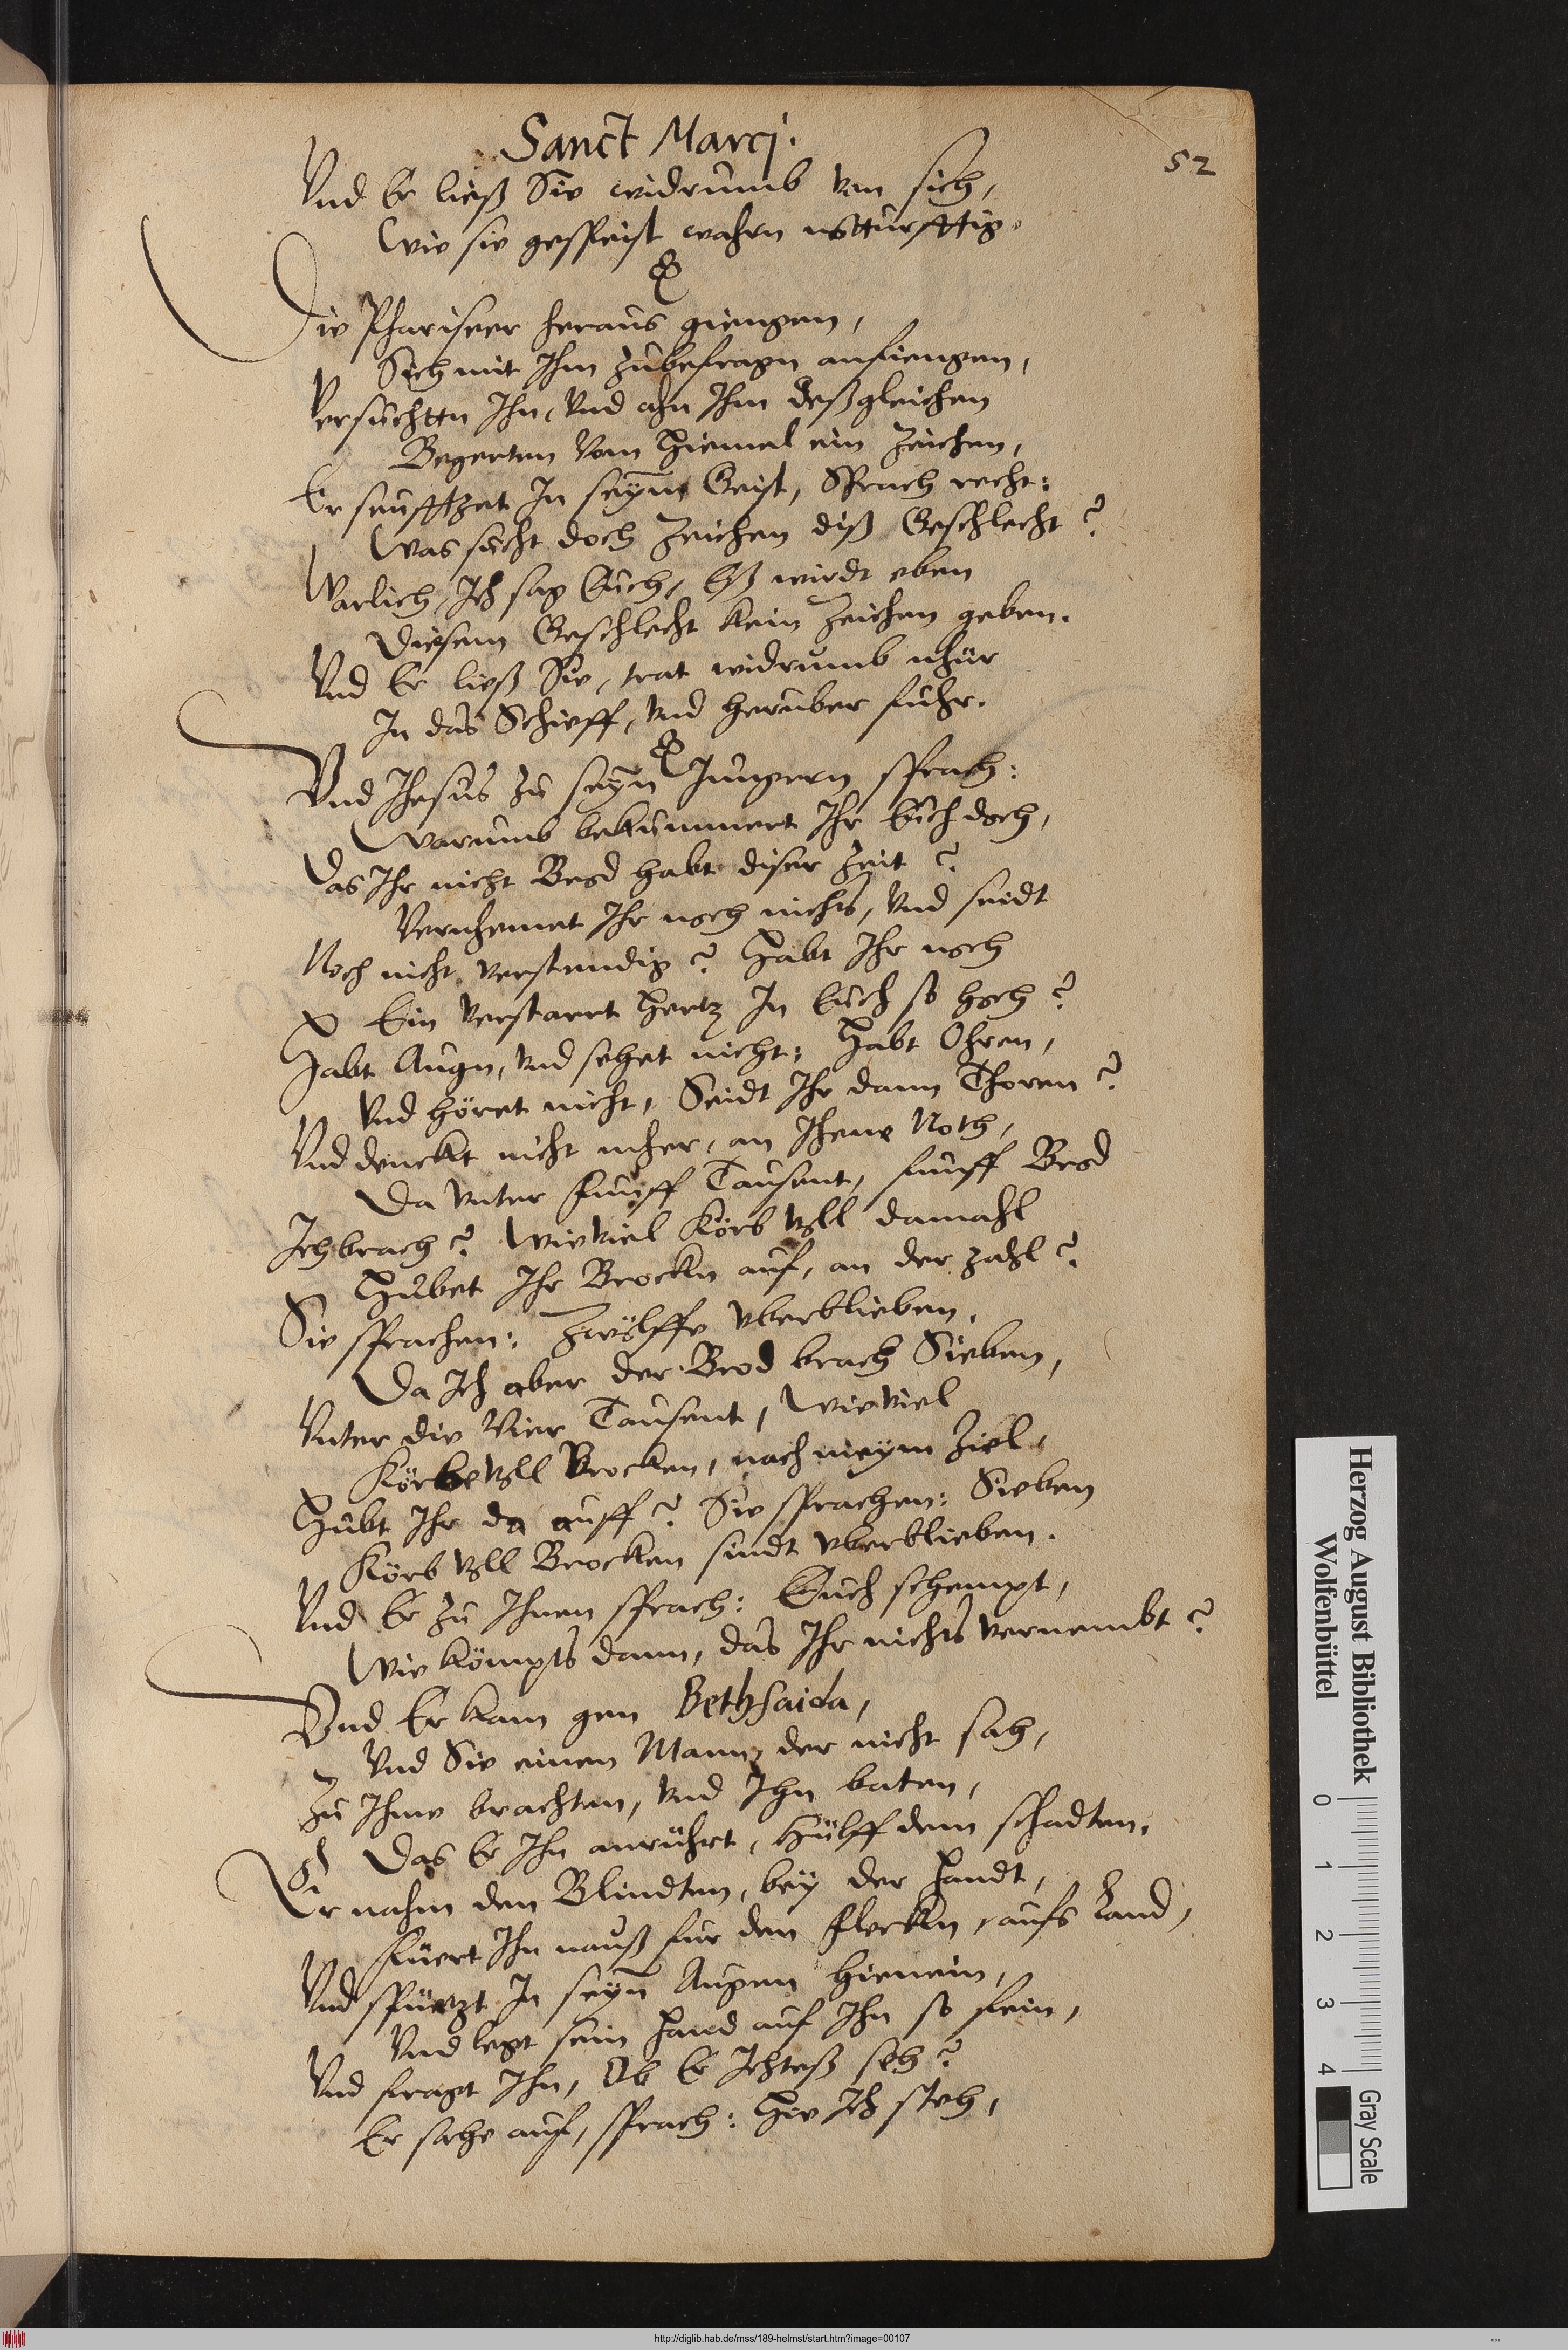 Sanct Marcj.
52
Vnd Er ließ Sie widrumb von sich,
Wie sie gespeist wahrn notturfftig.
Die Phariseer heraus giengen,
Sich mit Ihm zubefragn anfiengen,
Versuchttn Ihn, Vnd ahn Ihm deßgleichen
Begerten Vom Hiemel ein Zeichen,
Er seufftzet In seynem Geist, Sprach recht:
Was sucht doch Zeichen diß Geschlecht?
Warlich, Ich sag Euch, Eß wirdt eben
Diesem Geschlecht kein Zeichen geben.
Vnd Er ließ Sie, trat widrumb nhur
In das Schieff, Vnd herüber fuhr.
Vnd Ihesus zu seyn Jungern sprach:
Warumb bekummert Ihr Euch doch,
Das Ihr nicht Brod habt diser Zeit?
Vernhemet Ihr noch nichts, Vnd seidt
Noch nicht verstendig? Habt Ihr noch
Ein verstarrt Hertz In Euch so hoch?
Habt Augn, Vnd sehet nicht: Habt Ohren,
Vnd höret nicht, Seidt Ihr dann Thoren?
Vnd denckt nicht mher, an Ihene Noth,
Da Vnter Funff Tausent, funff Brod
Ich brach? Wieviel Körb Voll damahl
Hubet Ihr Brockn auf, an der Zahl?
Sie sprachen: Zwölffe vberblieben.
Da Ich aber der Brod brach Sieben,
Vnter die Vier Tausent, Wieviel
Körbe Voll Brocken, nach meym Ziel,
Hubt Ihr da auff? Sie sprachen: Sieben
Körb Voll Brocken sindt vberblieben.
Vnd Er zu Ihnen sprach: Euch schempt,
Wie kömpts dann, das Ihr nichts vernembt?
Vnd Er kam gen Bethsaida,
Vnd Sie einen Mann, der nicht sah,
Zu Ihme brachten, Vnd Ihn baten,
Das Er Ihn anrührt, Hülff dem schadten.
Er nahm den Blindten, bey der Handt,
Füert Ihn nauß fur den Fleckn, aufs Land,
Vnd spürtzt In seyn Augen hienein,
Vnd legt sein Hand auf Ihn so fein,
Vnd fragt Ihn, Ob Er Ichteß seh?
Er sahe auf, sprach: Hie Ich steh,
Herzog August Bibliothek
Wolfenbüttel
0 1 2 3 4
Gray Scale
http://diglib.hab.de/mss/189-helmst/start.htm?image=00107